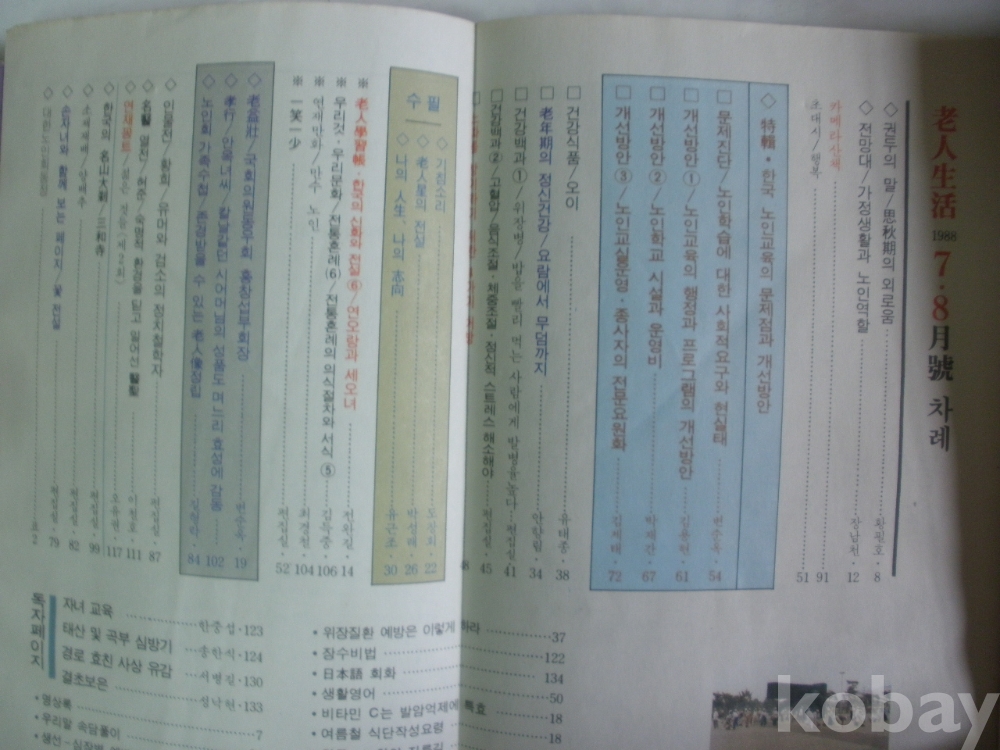 老人生活 1988 7·8月號 차례
◇ 권두의 말/思秋期의 외로움 황필호·8
◇ 전망대/가정생활과 노인역할 장남천·12
카메라산책 91
초대시/행복 51
◇ 特輯·한국 노인교육의 문제점과 개선방안
□ 문제진단/노인학습에 대한 사회적요구와 현실태 변순옥·54
□ 개선방안①/노인교육의 행정과 프로그램의 개선방안 김용현·61
□ 개선방안②/노인학교 시설과 운영비 박재간·67
□ 개선방안③/노인교실운영·종사자의 전문요원화 김제태·72
□ 건강식품/오이 유태종·38
□ 老年期의 정신건강/요람에서 무덤까지 안향림·34
□ 건강백과①/위장병/밥을 빨리 먹는 사람에게 발병율높다 편집실·41
□ 건강백과②/고혈압/음식조절·체중조절·정신적 스트레스 해소해야 편집실·45
수필
◇ 기침소리 도창회·22
◇ 老人星의 전설 박성배·26
◇ 나의 人生, 나의 志向 유근조·30
※ 老人學習帳·한국의 신화와 전설⑥/연오랑과 세오녀 전완길·14
※ 우리것·우리문화/전통혼례(6)/전통혼례의 의식절차와 서식⑤ 김득중·106
※ 연재만화/만수 노인 최경천·104
※ 一笑一少 편집실·52
◇ 老益壯/국회의원동우회 홍창섭부회장 변순옥·19
◇ 孝行/안옥녀씨/칼날같던 시어머님의 성품도 며느리 효성에 감동 102
◇ 노인회 가족수첩/존경받을 수 있는 老人像정립 84
◇ 인물전/황희/유머와 검소의 정치철학자 편집실·87
◇ 名醫 열전/허준/숙명적 환경을 딛고 일어선 醫聖 이철호·111
연재콩트/젊은 것들(제2회) 오용현·117
◇ 한국의 名山大刹/三和寺 편집실·99
◇ 소채재배/양배추 편집실·82
◇ 손자녀와 함께 보는 페이지/꽃 전설 편집실·79
◇ 대한노인회동정 표 2
독자페이지
자녀 교육 한중섭·123
태산 및 곡부 심방기 송한식·124
경로 효친 사상 유감 서병길·130
결초보은 성낙현·133
• 명상록
• 우리말 속담풀이 7
• 위장질환 예방은 이렇게 하라 37
• 장수비법 122
• 日本語 회화 134
• 생활영어 50
• 비타민 C는 발암억제에 특효 18
• 여름철 식단작성요령 18
kobay